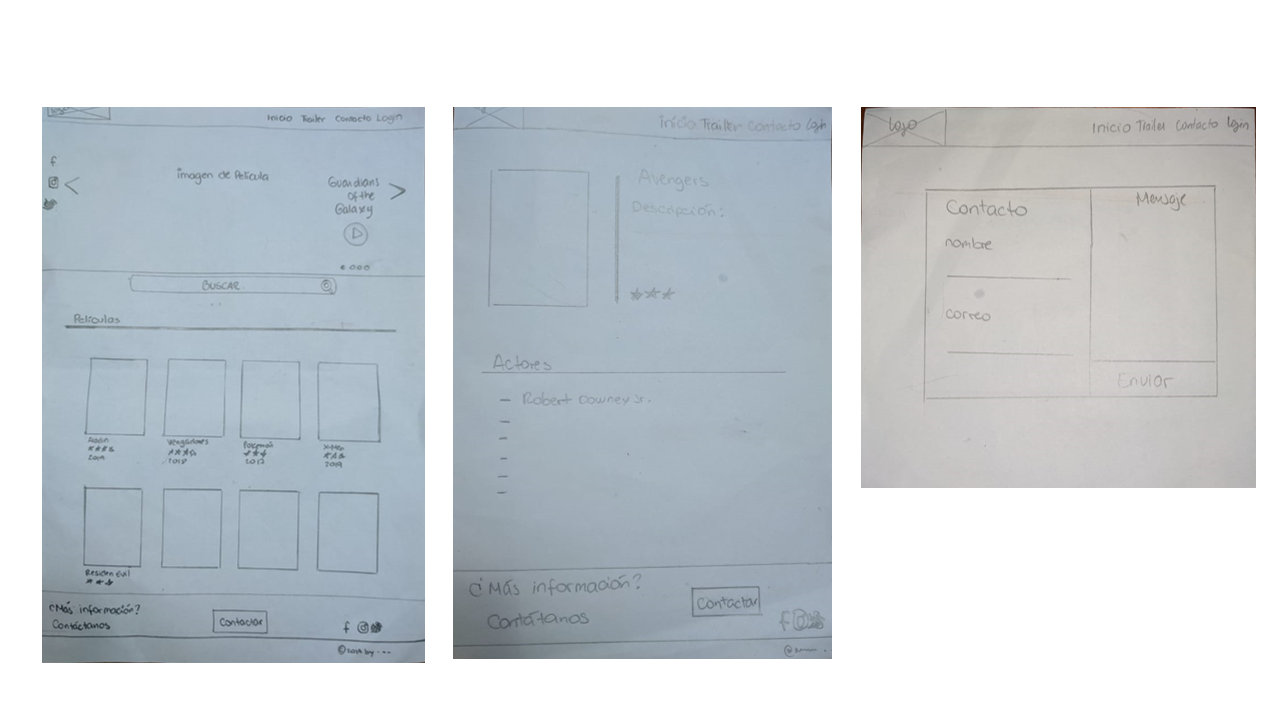 logo
Inicio Trailer Contacto Login
f
imagen de Película
Guardians
of the
Galaxy
BUSCAR
Películas
Vengadores
2018
2017
X-Men
2019
Residen Evil
¿Más información?
Contáctanos
Contactar
f
Inicio Trailer Contacto Login
Avengers
Descripción:
Actores
- Robert Downey Jr.
-
-
-
-
-
¿Más información?
Contátanos
Contactar
f
Logo
Inicio Trailer Contacto Login
Contacto
nombre
correo
Mensaje
Enviar